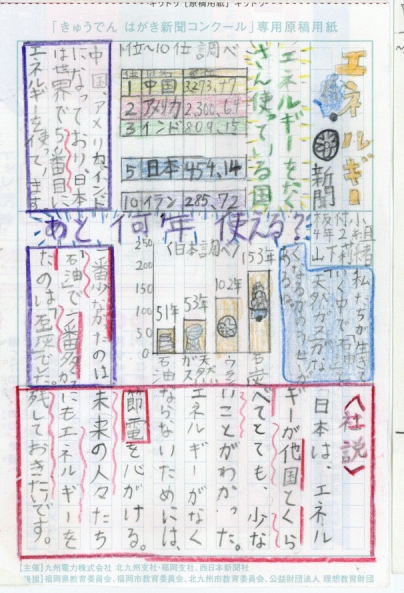 「きゅうでん はがき新聞コンクール」専用原稿用紙
エネルギー
新聞
エネルギーをたく
さん使っている国
1位～10位調べ
1 中国 3273,49
2 アメリカ 2,300,64
3 インド 809,15
5 日本 454,14
10 イラン 285,72
中国、アメリカ、インド
になっており、日本
は世界で5番目に
エネルギーを使っています
あと何年使える?
(日本調べ)
250
200
150
100
50
0
51年
53年
102年
153年
石油
天然ガス
ウラン
石炭
私たちが生き
一番少なかったのは
「石油」で一番多か
たのは「石炭」でした。
〈社説〉
日本は、エネル
ギーが他国とくら
べてとても、少な
いことがわかった。
エネルギーがなく
ならないためには、
節電を心がける。
未来の人々たち
にもエネルギーを
残しておきたいです。
【主催】九州電力株式会社 北九州支社・福岡支社、西日本新聞社
【後援】福岡県教育委員会、福岡市教育委員会、北九州市教育委員会、公益財団法人 理想教育財団